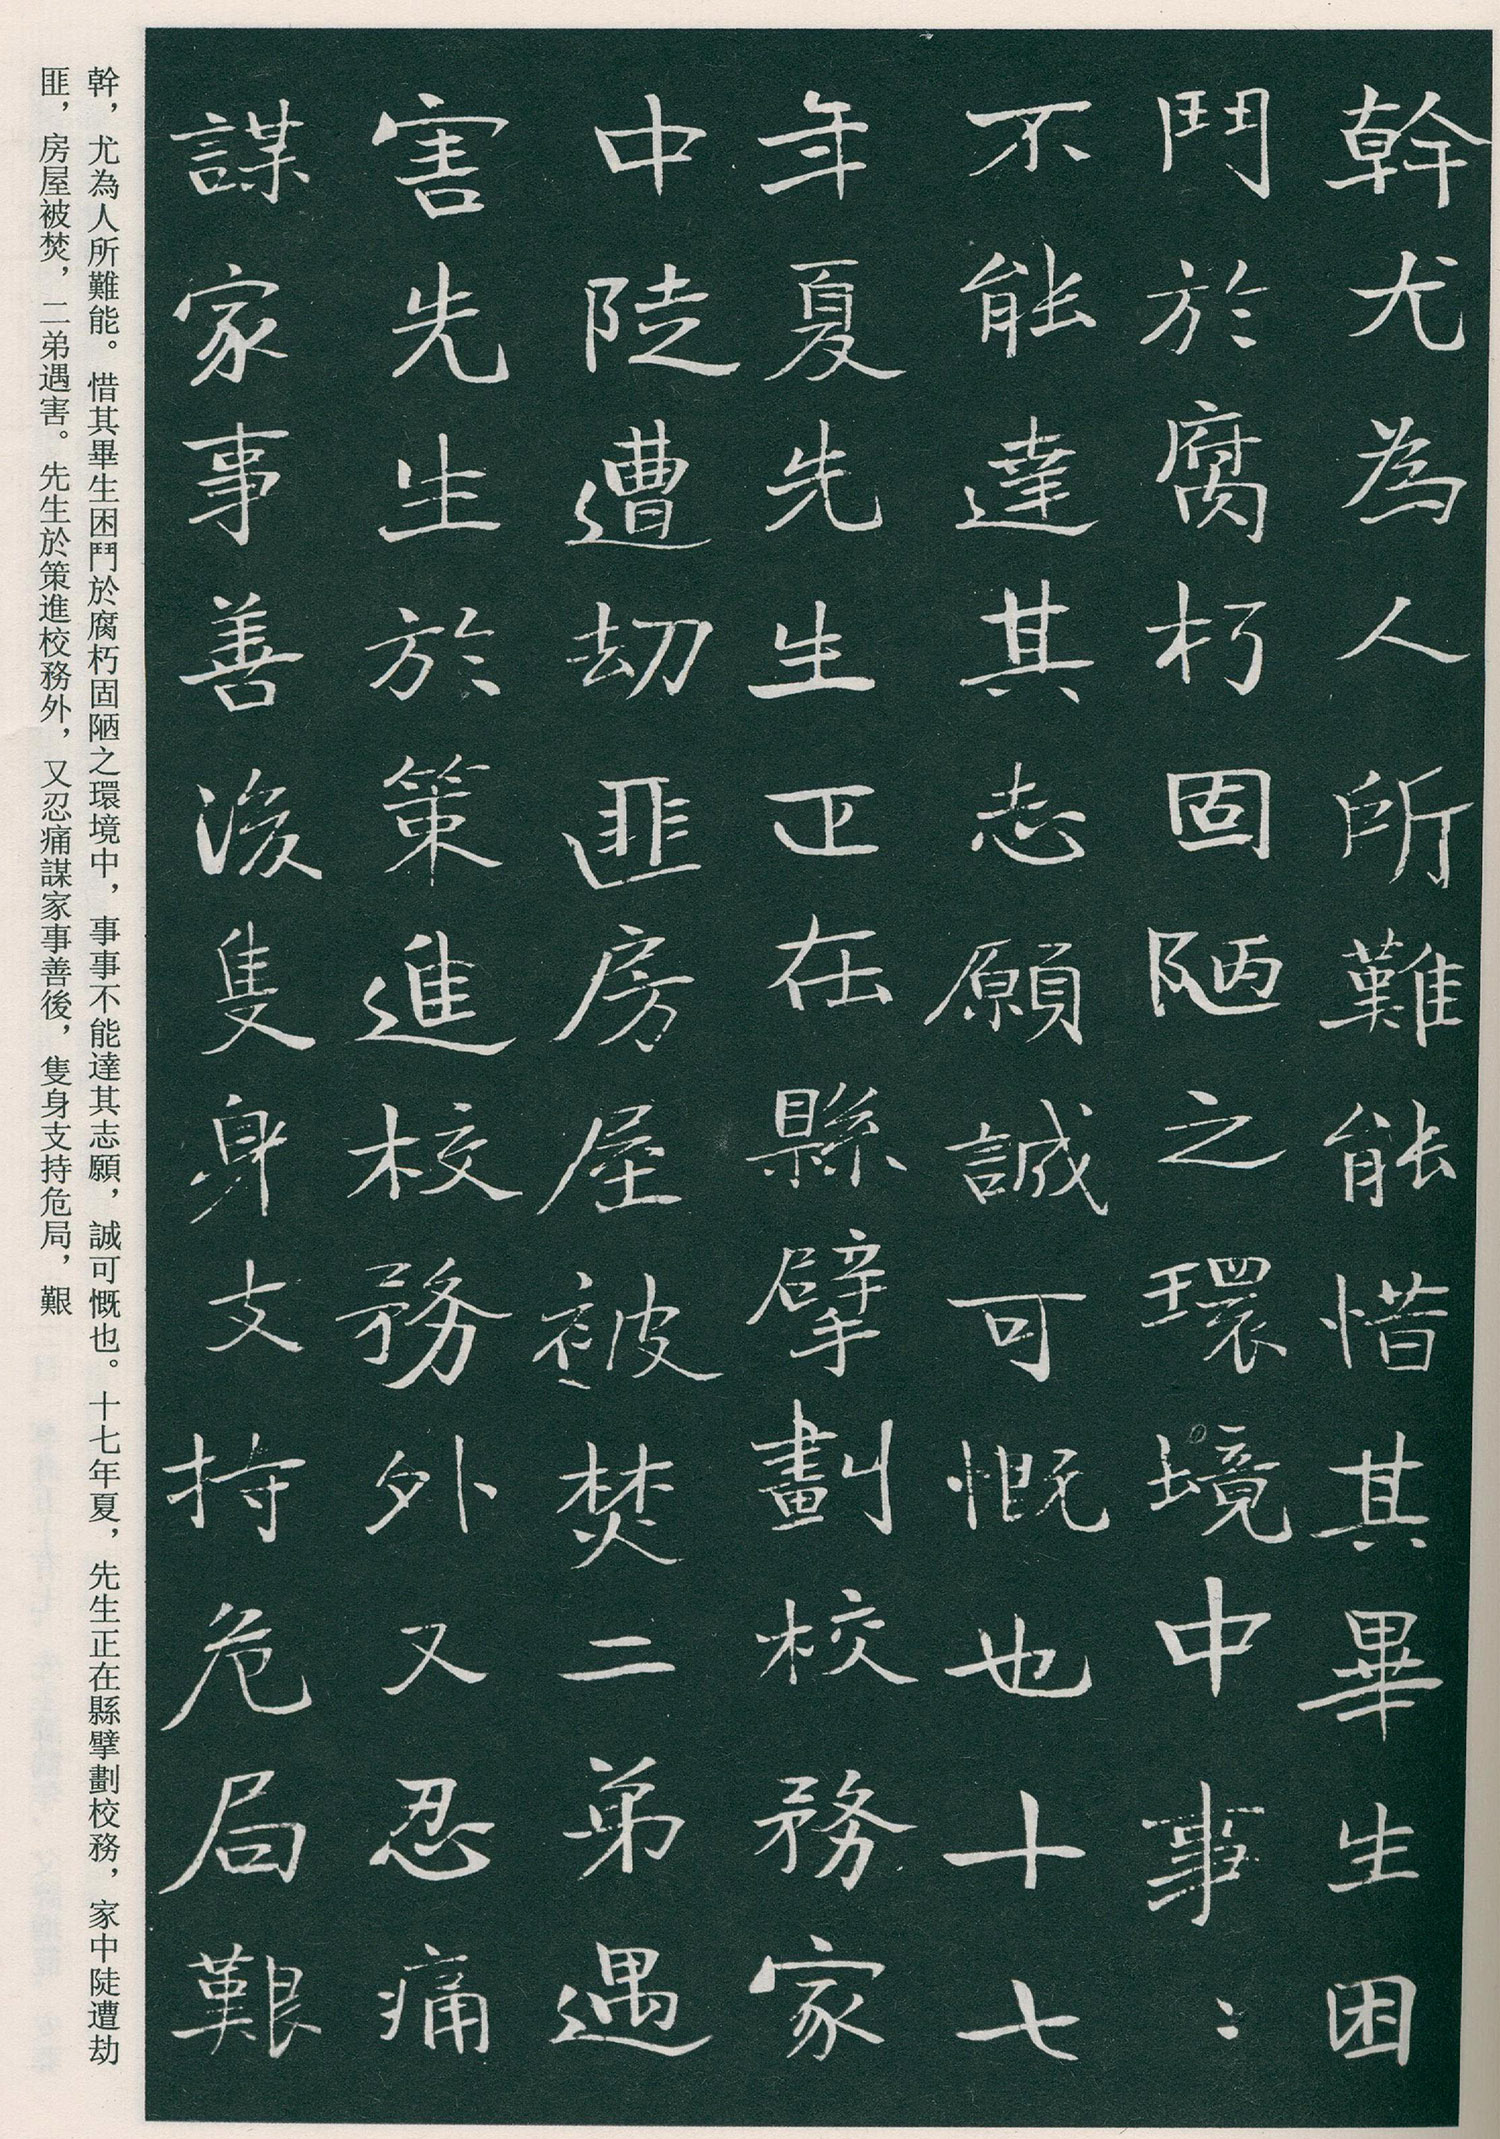 幹尤為人所難能惜其畢生困
鬥於腐朽固陋之環境中事〻
不能達其志願誠可慨也十七
年夏先生正在縣擘劃校務家
中陡遭劫匪房屋被焚二弟遇
害先生於策進校務外又忍痛
謀家事善後隻身支持危局艱
幹，尤為人所難能。惜其畢生困鬥於腐朽固陋之環境中，事事不能達其志願，誠可慨也。十七年夏，先生正在縣擘劃校務，家中陡遭劫
匪，房屋被焚，二弟遇害。先生於策進校務外，又忍痛謀家事善後，隻身支持危局，艱